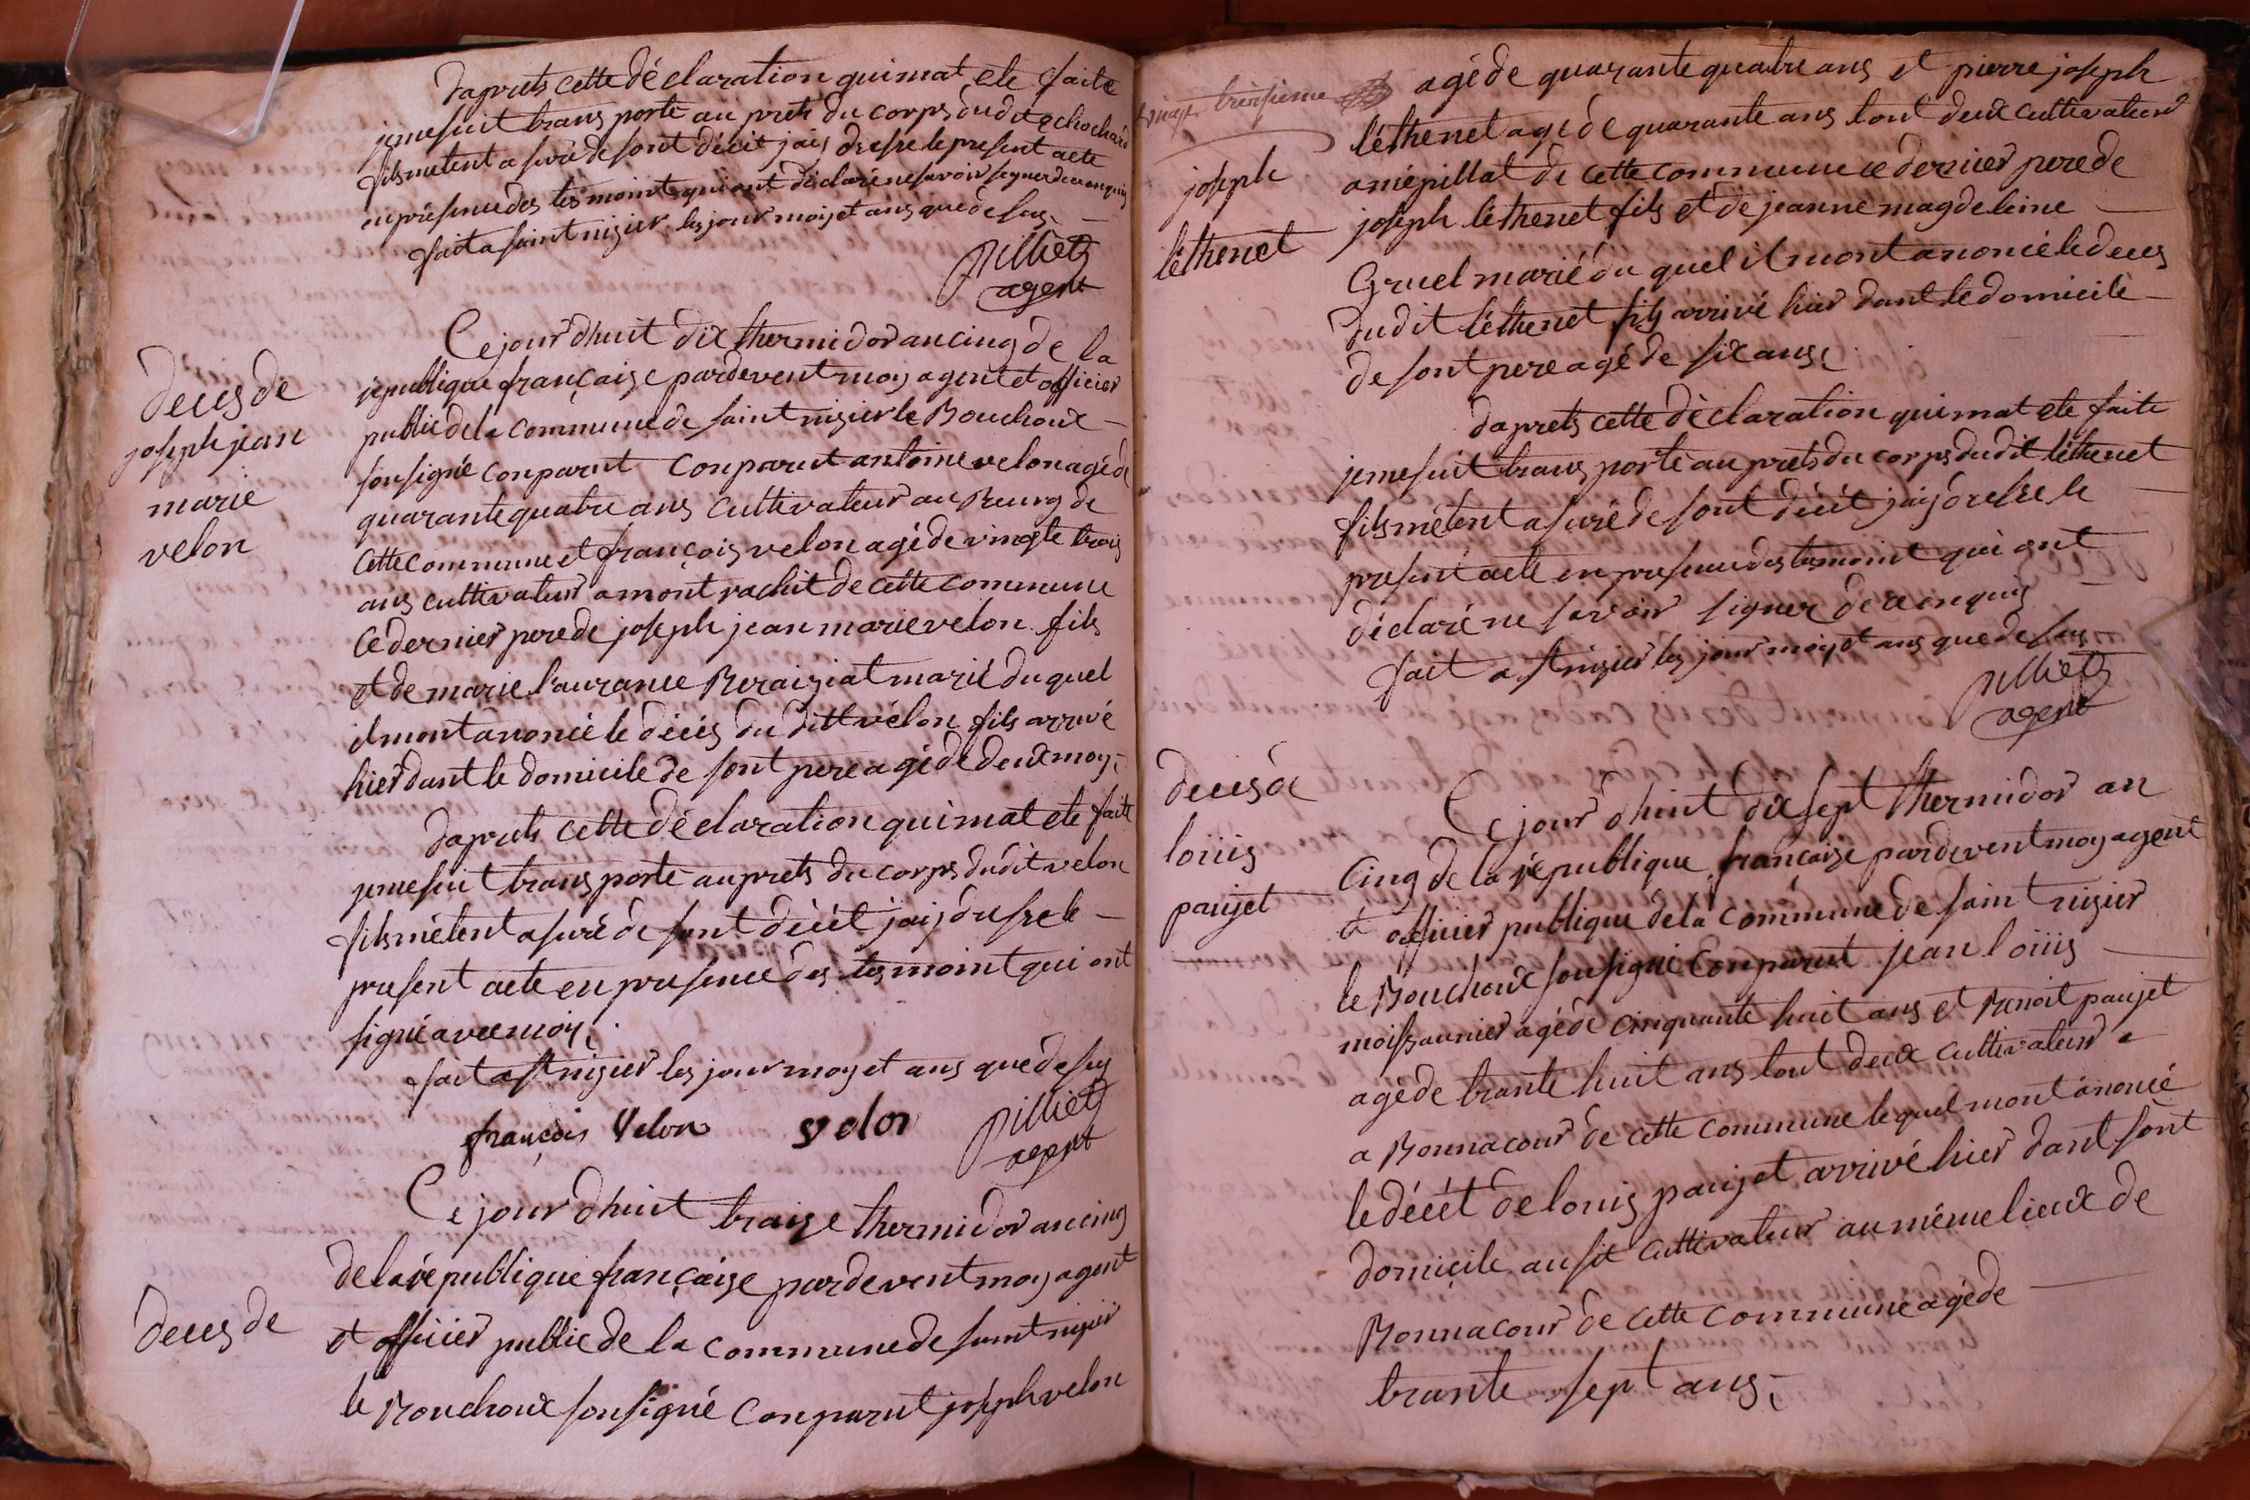 daprets cette déclaration quimat ete faite
jemesuit transporté au prets du corps dudit echochard
fils metent asuré de sont décét jaij dresse le present acte
en présence des tesmoint qui ont déclaré ne savoir signer de ce enquis
fait a saint nizier les jour moij et ans que desus
pilliets
agent
deces de
joseph jean
marie
velon
Ce jour dhuit dix thermidor an cinq de la
republique française pardevent moy agent et officier
public de la commune de saint nizier le Bouchoux
sousigné conparut conparut antoine velon agé de
quarante quatre ans cultivateur au Bourg de
cette commune et françois velon agé de vingte trois
ans cultivateur a mont rachit de cette commune
ce dernier pere de joseph jean marie velon fils
et de marie laurance Beraiziat marié du quel
il mont anoncé le décés du dit velon fils arrivé
hier dant le domicile de sont pere agé de deux moy
daprets cette déclaration quimat ete faite
jemesuit transporté auprets du corps dudit velon
fils métent asuré de sont décét jaij dresse le
present acte en presence des tesmoint qui ont
signé avec moij
fait a st nizier les jour moy et ans que desus
françois velon velon pilliets
agent
deces de
Ce jour dhuit traize thermidor an cinq
de la republique française pardevent moy agent
et officier public de la commune de saint nizier
le Bouchoux sousigné conparut joseph velon
treisieme
joseph
léthenet
agé de quarante quatre ans et pierre joseph
léthenet agé de quarante ans tout deux cultivateur
a mépillat de cette commune ce dernier pere de
joseph léthenet fils et de jeanne magdeleine
Gruel marié du quel il mont anoncé le deces
dudit léthenet fils arrivé hier dant le domicile
de sont pere agé de six ans
daprets cette déclaration quimat ete faite
jemesuit transporté au prets du corps dudit léthenet
fils métent asuré de sont décét jaij dresse le
present acte en presence des tesmoint qui ont
déclaré ne savoir signer de ce enquis
fait a st nizier les jour moy et ans que desus
pilliets
agent
deces de
loiiis
paujet
Ce jour dhuit dix sept thermidor an
cinq de la republique française pardevent moy agent
et officier publique de la commune de saint nizier
le Bouchoux sousigné Conparut jean loiiis
moissonnier agé de cinquante huit ans et Benoit paujet
agé de trante huit ans tout deux cultivateur a
a Bonnacour de cette commune lequel mont anoncé
le décét de louis paujet arrivé hier dant sont
domicile ausit cultivateur au méme lieux de
Bonnacour de cette commune agé de
trante sept ans